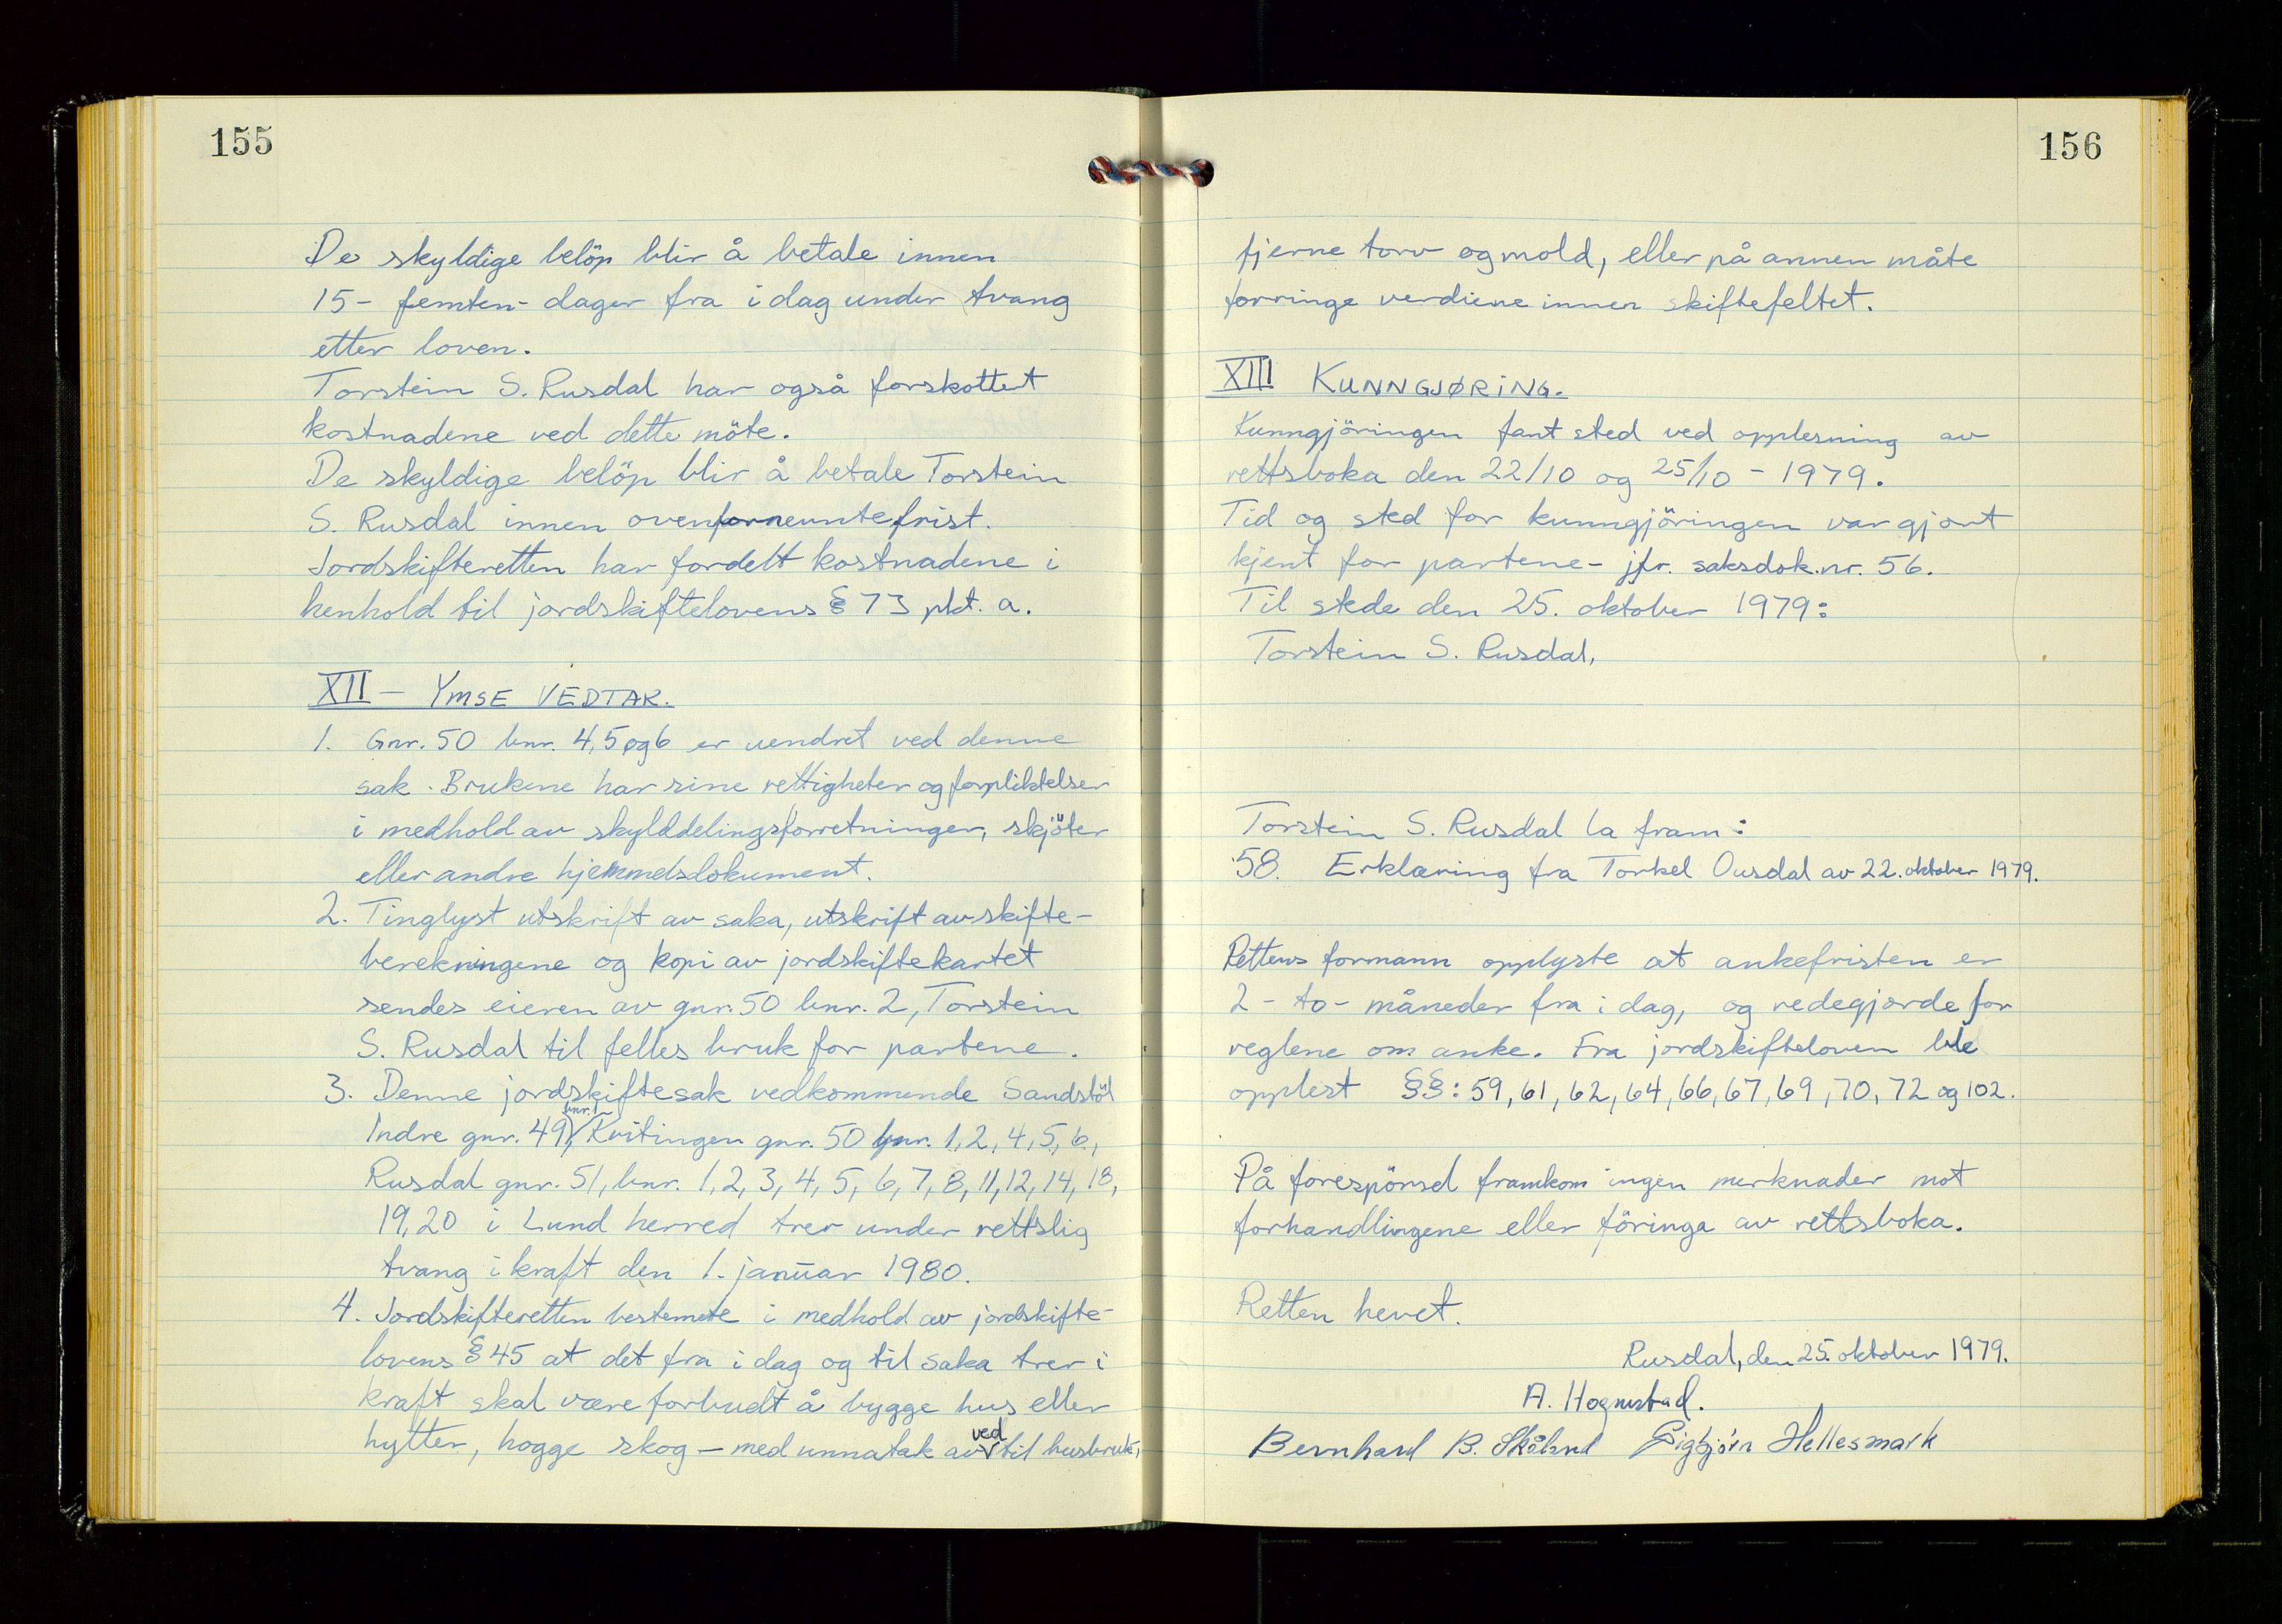 155
De skyldige beløp blir å betale innen
15- femten- dager fra i dag under tvang
etter loven.
Torstein S. Rusdal har også forskottert
kostnadene ved dette möte.
De skyldige belöp blir å betale Torstein
S. Rusdal innen ovenfornevnte frist.
Jordskifteretten har fordelt kostnadene i
henhold til jordskiftelovens § 73 pkt. a.
XII – YMSE VEDTAK.
1. Gnr. 50 bnr. 4,5 og 6 er uendret ved denne
sak. Brukene har sine rettigheter og forpliktelser
i medhold av skylddelingsforretninger, skjöter
eller andre hjemmelsdokument.
2. Tinglyst utskrift av saka, utskrift av skifte-
berekningene og kopi av jordskiftekartet
sendes eieren av gnr. 50 bnr. 2, Torstein
S. Rusdal til felles bruk for partene.
3. Denne jordskiftesak vedkommende Sandstöl
Indre gnr. 49, bnr. 1, Kvitingen gnr. 50 bnr. 1, 2, 4, 5, 6,
Rusdal gnr. 51, bnr. 1, 2, 3, 4, 5, 6, 7, 8, 11, 12, 14, 18,
19, 20 i Lund herred trer under rettslig
tvang i kraft den 1. januar 1980.
4. Jordskifteretten bestemte i medhold av jordskifte-
lovens § 45 at det fra i dag og til saka trer i
kraft skal være forbudt å bygge hus eller
hytter, hogge skog – med unnatak av ved til husbruk,
156
fjerne torv og mold, eller på annen måte
forringe verdiene innen skiftefeltet.
XIII KUNNGJØRING.
Kunngjöringen fant sted ved opplesning av
rettsboka den 22/10 og 25/10 - 1979.
Tid og sted for kunngjöringen var gjort
kjent for partene - jfr. saksdok. nr. 56.
Til stede den 25. oktober 1979:
Torstein S. Rusdal,
Torstein S. Rusdal la fram:
58. Erklæring fra Torkel Ousdal av 22. oktober 1979.
Rettens formann opplyste at ankefristen er
2 - to - måneder fra i dag, og redegjorde for
reglene om anke. Fra jordskifteloven ble
opplest §§: 59, 61, 62, 64, 66, 67, 69, 70, 72 og 102.
På forespörsel framkom ingen merknader mot
forhandlingene eller föringa av rettsboka.
Retten hevet.
Rusdal, den 25. oktober 1979.
A. Hognestad.
Bernhard B. Skåland Sigbjörn Hellesmark